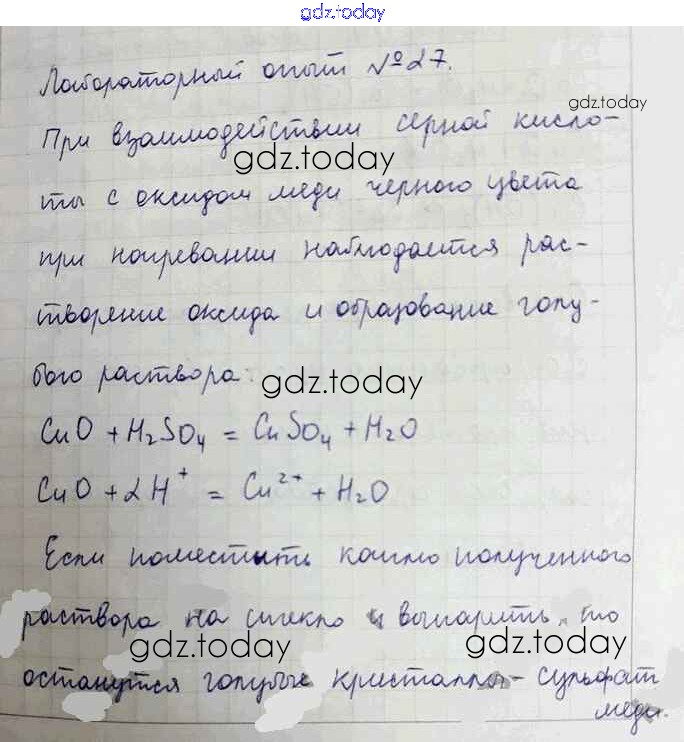 gdz.today
Лабораторный опыт №27.
gdz.today
При взаимодействии серной кисло-
gdz.today
ты с оксидом меди черного цвета
при нагревании наблюдается рас-
творение оксида и образование голу-
бого раствора:
gdz.today
CuO + H₂SO₄ = CuSO₄ + H₂O
CuO + 2H⁺ = Cu²⁺ + H₂O
Если поместить каплю полученного
раствора на стекло и выпарить, то
gdz.today
gdz.today
останутся голубые кристаллы - сульфат
меди.